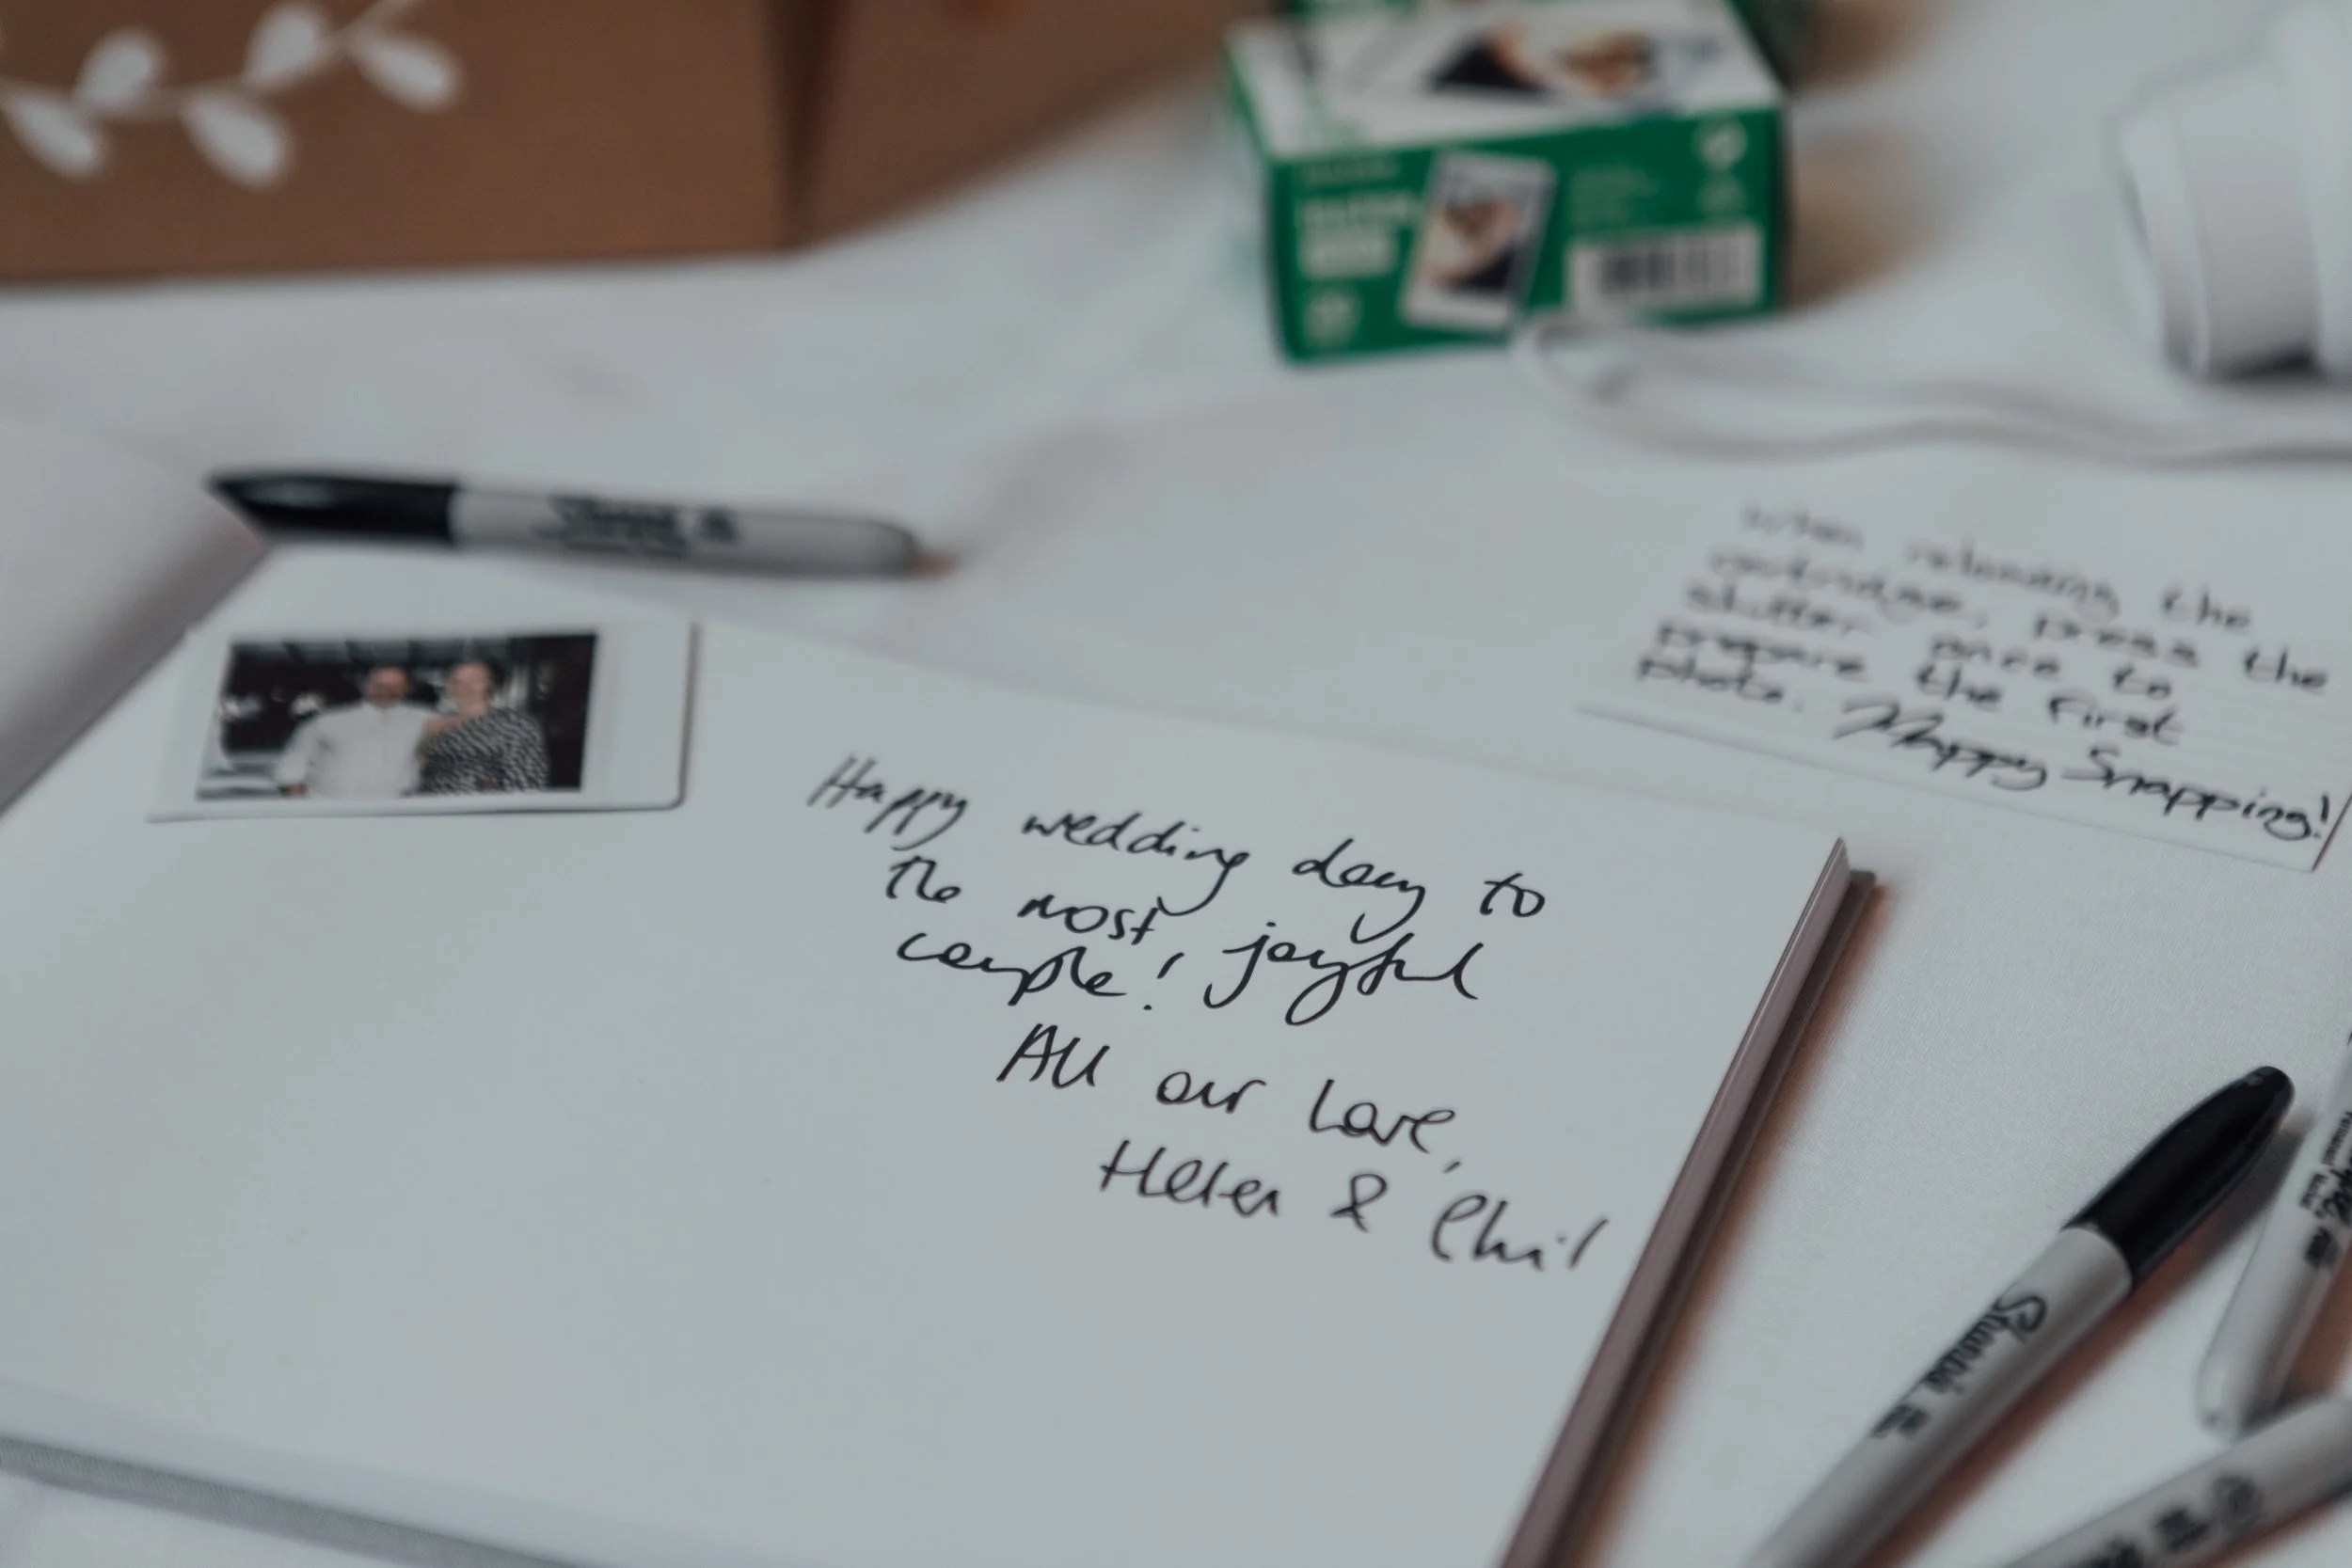 Happy wedding day to
the most joyful
couple!
All our love,
Helen & Phil
When reloading the
cartridge, press the
shutter once to
prepare the first
photo. Happy Snapping!
Sharpie
Sharpie